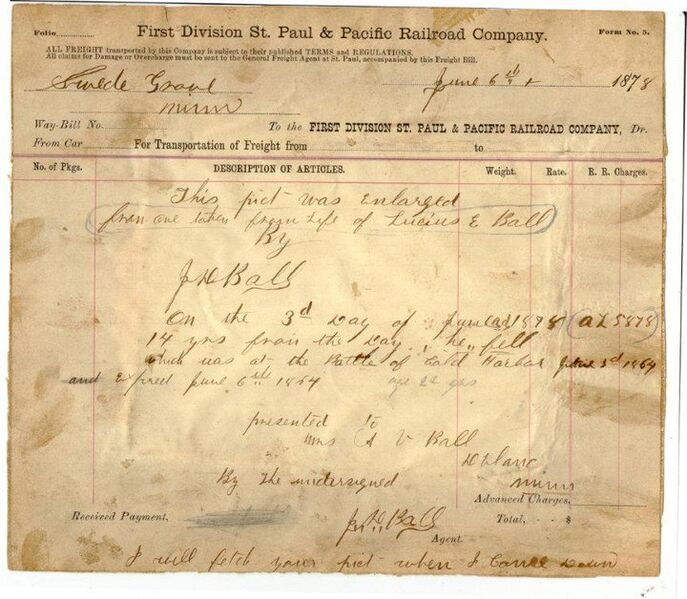 Folio
First Division St. Paul & Pacific Railroad Company.
Form No. 5.
ALL FREIGHT transported by this Company is subject to their published TERMS and REGULATIONS.
All claims for Damage or Overcharge must be sent to the General Freight Agent at St. Paul, accompanied by this Freight Bill.
Swede Grove June 6th 1878
Minn
Way-Bill No. To the FIRST DIVISION ST. PAUL & PACIFIC RAILROAD COMPANY, Dr.
From Car For Transportation of Freight from to
No. of Pkgs. DESCRIPTION OF ARTICLES. Weight. Rate. R. R. Charges.
This pict was Enlarged
from one taken from Life of Lucius E Ball
By
J H Ball
On the 3rd Day of June 1878
14 yrs from the Day he fell
which was at the Battle of Cold Harbor June 3rd 1864
and Expired June 6th 1864 age 22 yrs
presented to
Mrs A V Ball
Delano
Minn
By The undersigned
Advanced Charges,
Received Payment, Total, $
J. H. Ball
Agent.
I will fetch your pict when I Come Down